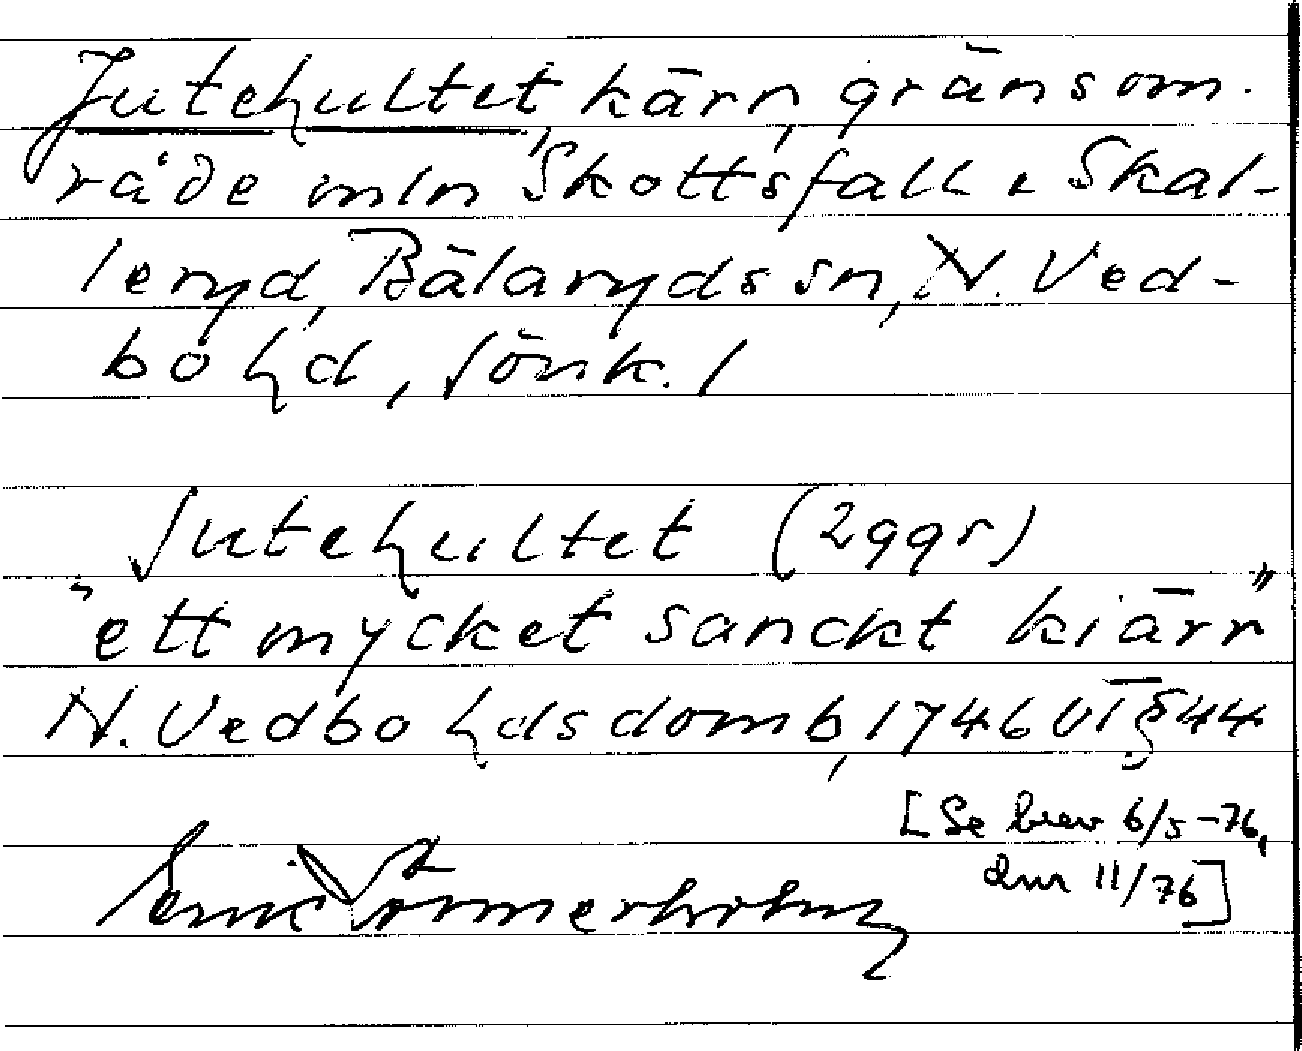 Jutehultet, kärr, gränsom-
råde mln Skottsfall o Skal-
leryd, Bälaryds sn, N. Ved-
bo hd, Jönk. l
Jutehultet (2ggr)
"ett mycket sanckt kiärr"
N. Vedbo hds domb, 1746 VT § 44
[Se brev 6/5-76,
dnr 11/76]
Erik